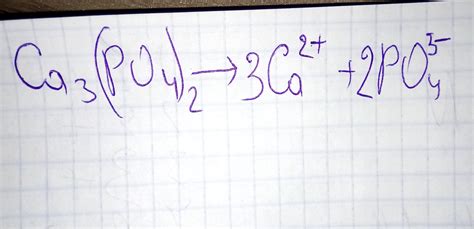 Ca₃(PO₄)₂ → 3Ca²⁺ + 2PO₄³⁻